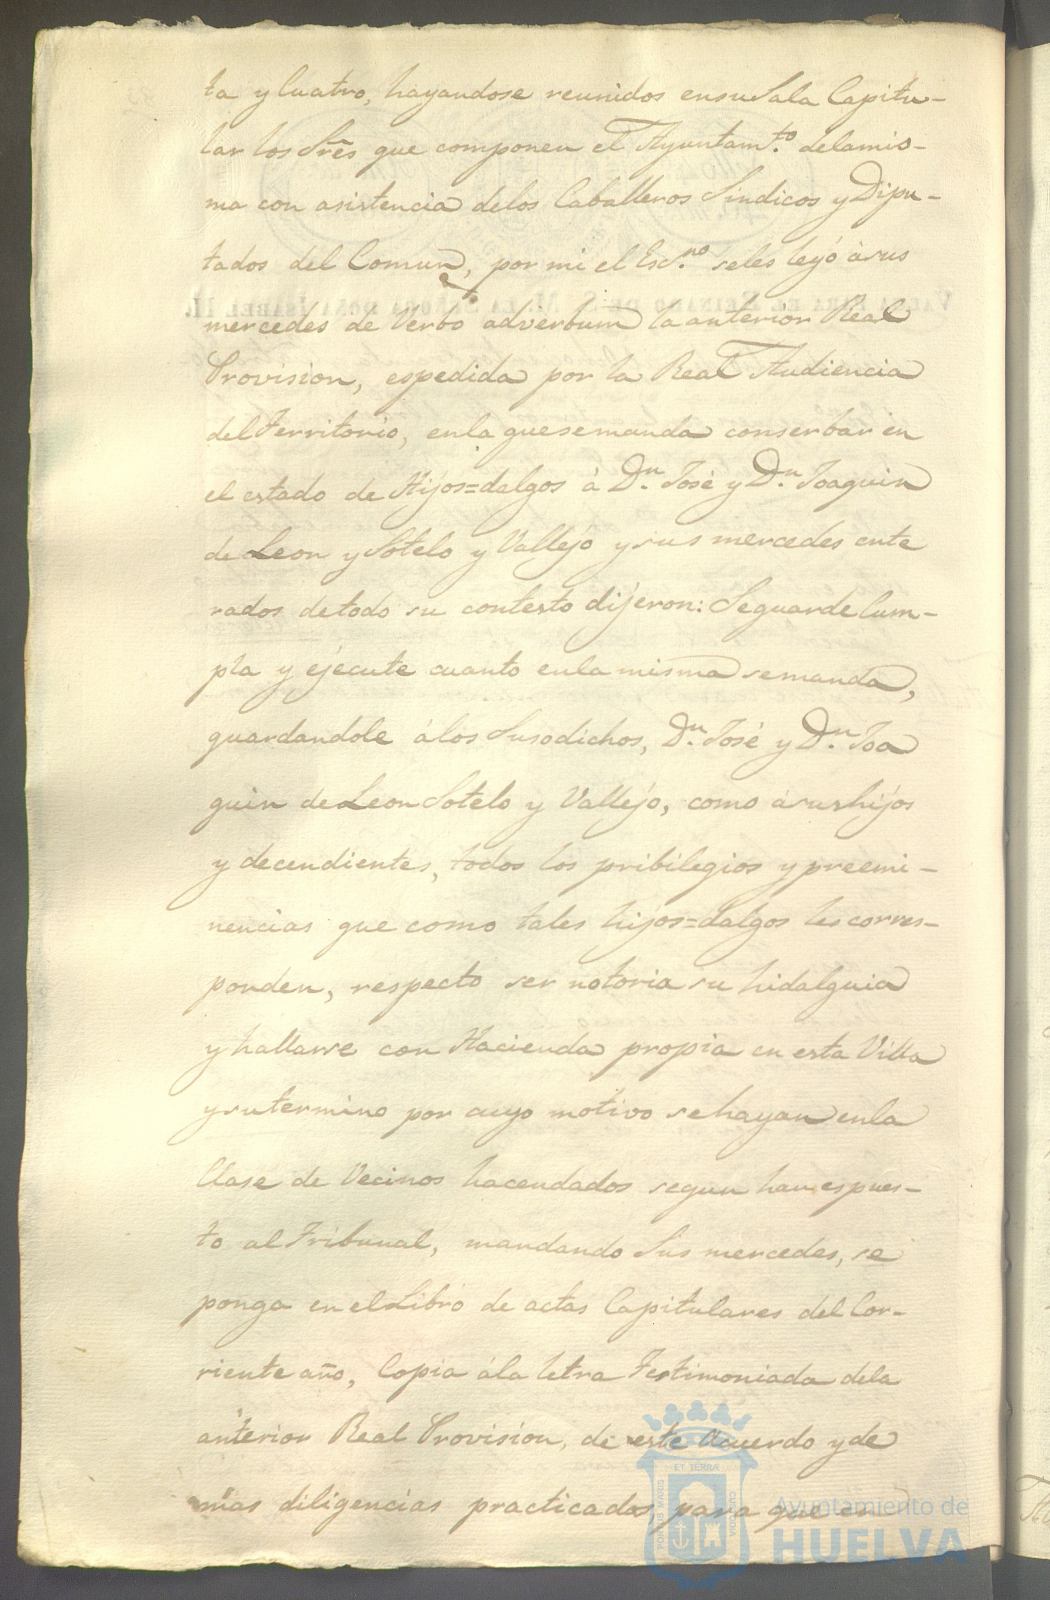 ta y Cuatro, hayandose reunidos ensu Sala Capitu-
lar los Sres que componen el Ayuntam.to delamis-
ma con asistencia delos Caballeros Sindicos y Dipu-
tados del Comun, por mi el Esc.no seles leyó àsus
mercedes de Verbo adverbum la anterior Real
Provision, espedida por la Real Audiencia
del Territorio, enla quesemanda conserbar en
el estado de Hijos=dalgos à D.n José y D.n Joaquin
de Leon y Sotelo y Vallejo y sus mercedes ente
rados detodo su contesto dijeron: Seguarde Cum-
pla y ejecute cuanto enla misma semanda,
guardandole álos Susodichos, D.n José y D.n Joa
quin de Leon Sotelo y Vallejo, como ásus hijos
y decendientes, todos los pribilegios y preemi-
nencias que como tales hijos=dalgos les corres-
ponden, respecto ser notoria su hidalguia
y hallarse con Hacienda propia en esta Villa
ysutermino por cuyo motivo sehayan enla
Clase de Vecinos hacendados segun han espues-
to al Tribunal, mandando Sus mercedes, se
ponga en el Libro de actas Capitulares del Cor-
riente año, Copia ála letra Testimoniada dela
anterior Real Provision, de este Acuerdo y de
mas diligencias practicadas, para que en
VALGA PARA EL REINADO DE S. M. LA SEÑORA DOÑA ISABEL II.
PORTUS MARIS ET TERRÆ CUSTODIA
Ayuntamiento de
HUELVA